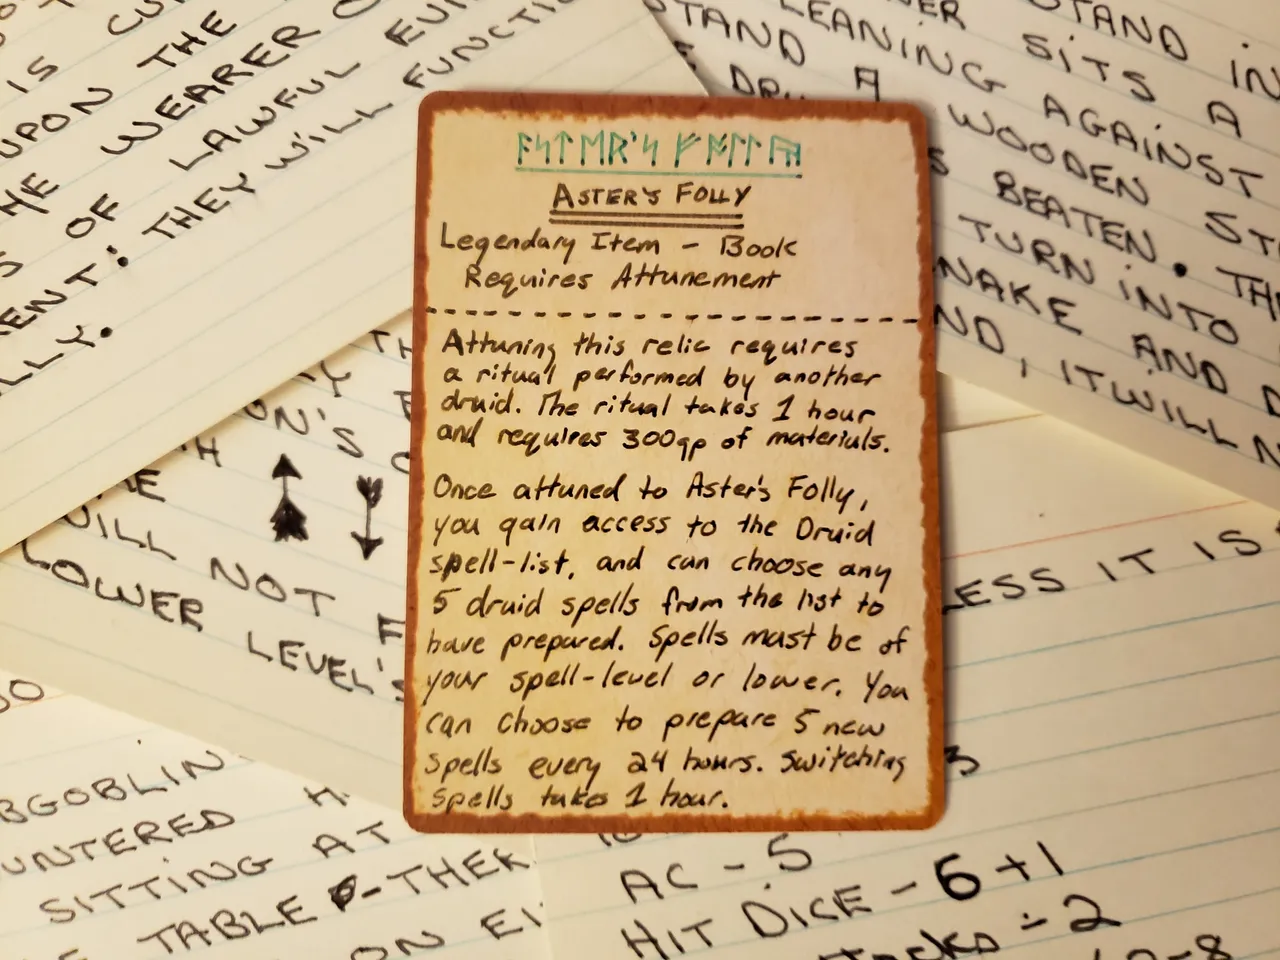 ᚨᛋᛏᛖᚱ'ᛋ ᚠᛟᛚᛚᚤ
ASTER'S FOLLY
Legendary Item - Book
Requires Attunement
Attuning this relic requires
a ritual performed by another
druid. The ritual takes 1 hour
and requires 300gp of materials.
Once attuned to Aster's Folly,
you gain access to the Druid
spell-list, and can choose any
5 druid spells from the list to
have prepared. Spells must be of
your spell-level or lower. You
can choose to prepare 5 new
spells every 24 hours. Switching
spells takes 1 hour.
IS
UPON THE
WEARER
OF LAWFUL
THEY WILL
LLY.
ON'S
WILL NOT
LOWER LEVEL'S
STAND IN
SITS A
STAND A LEANING AGAINST
WOODEN
BEATEN.
TURN INTO
AND
, IT WILL
LESS IT IS
BGOBLIN
UNTERED
SITTING AT
TABLE - THER
ON
AC - 5
HIT DICE - 6+1
- 2